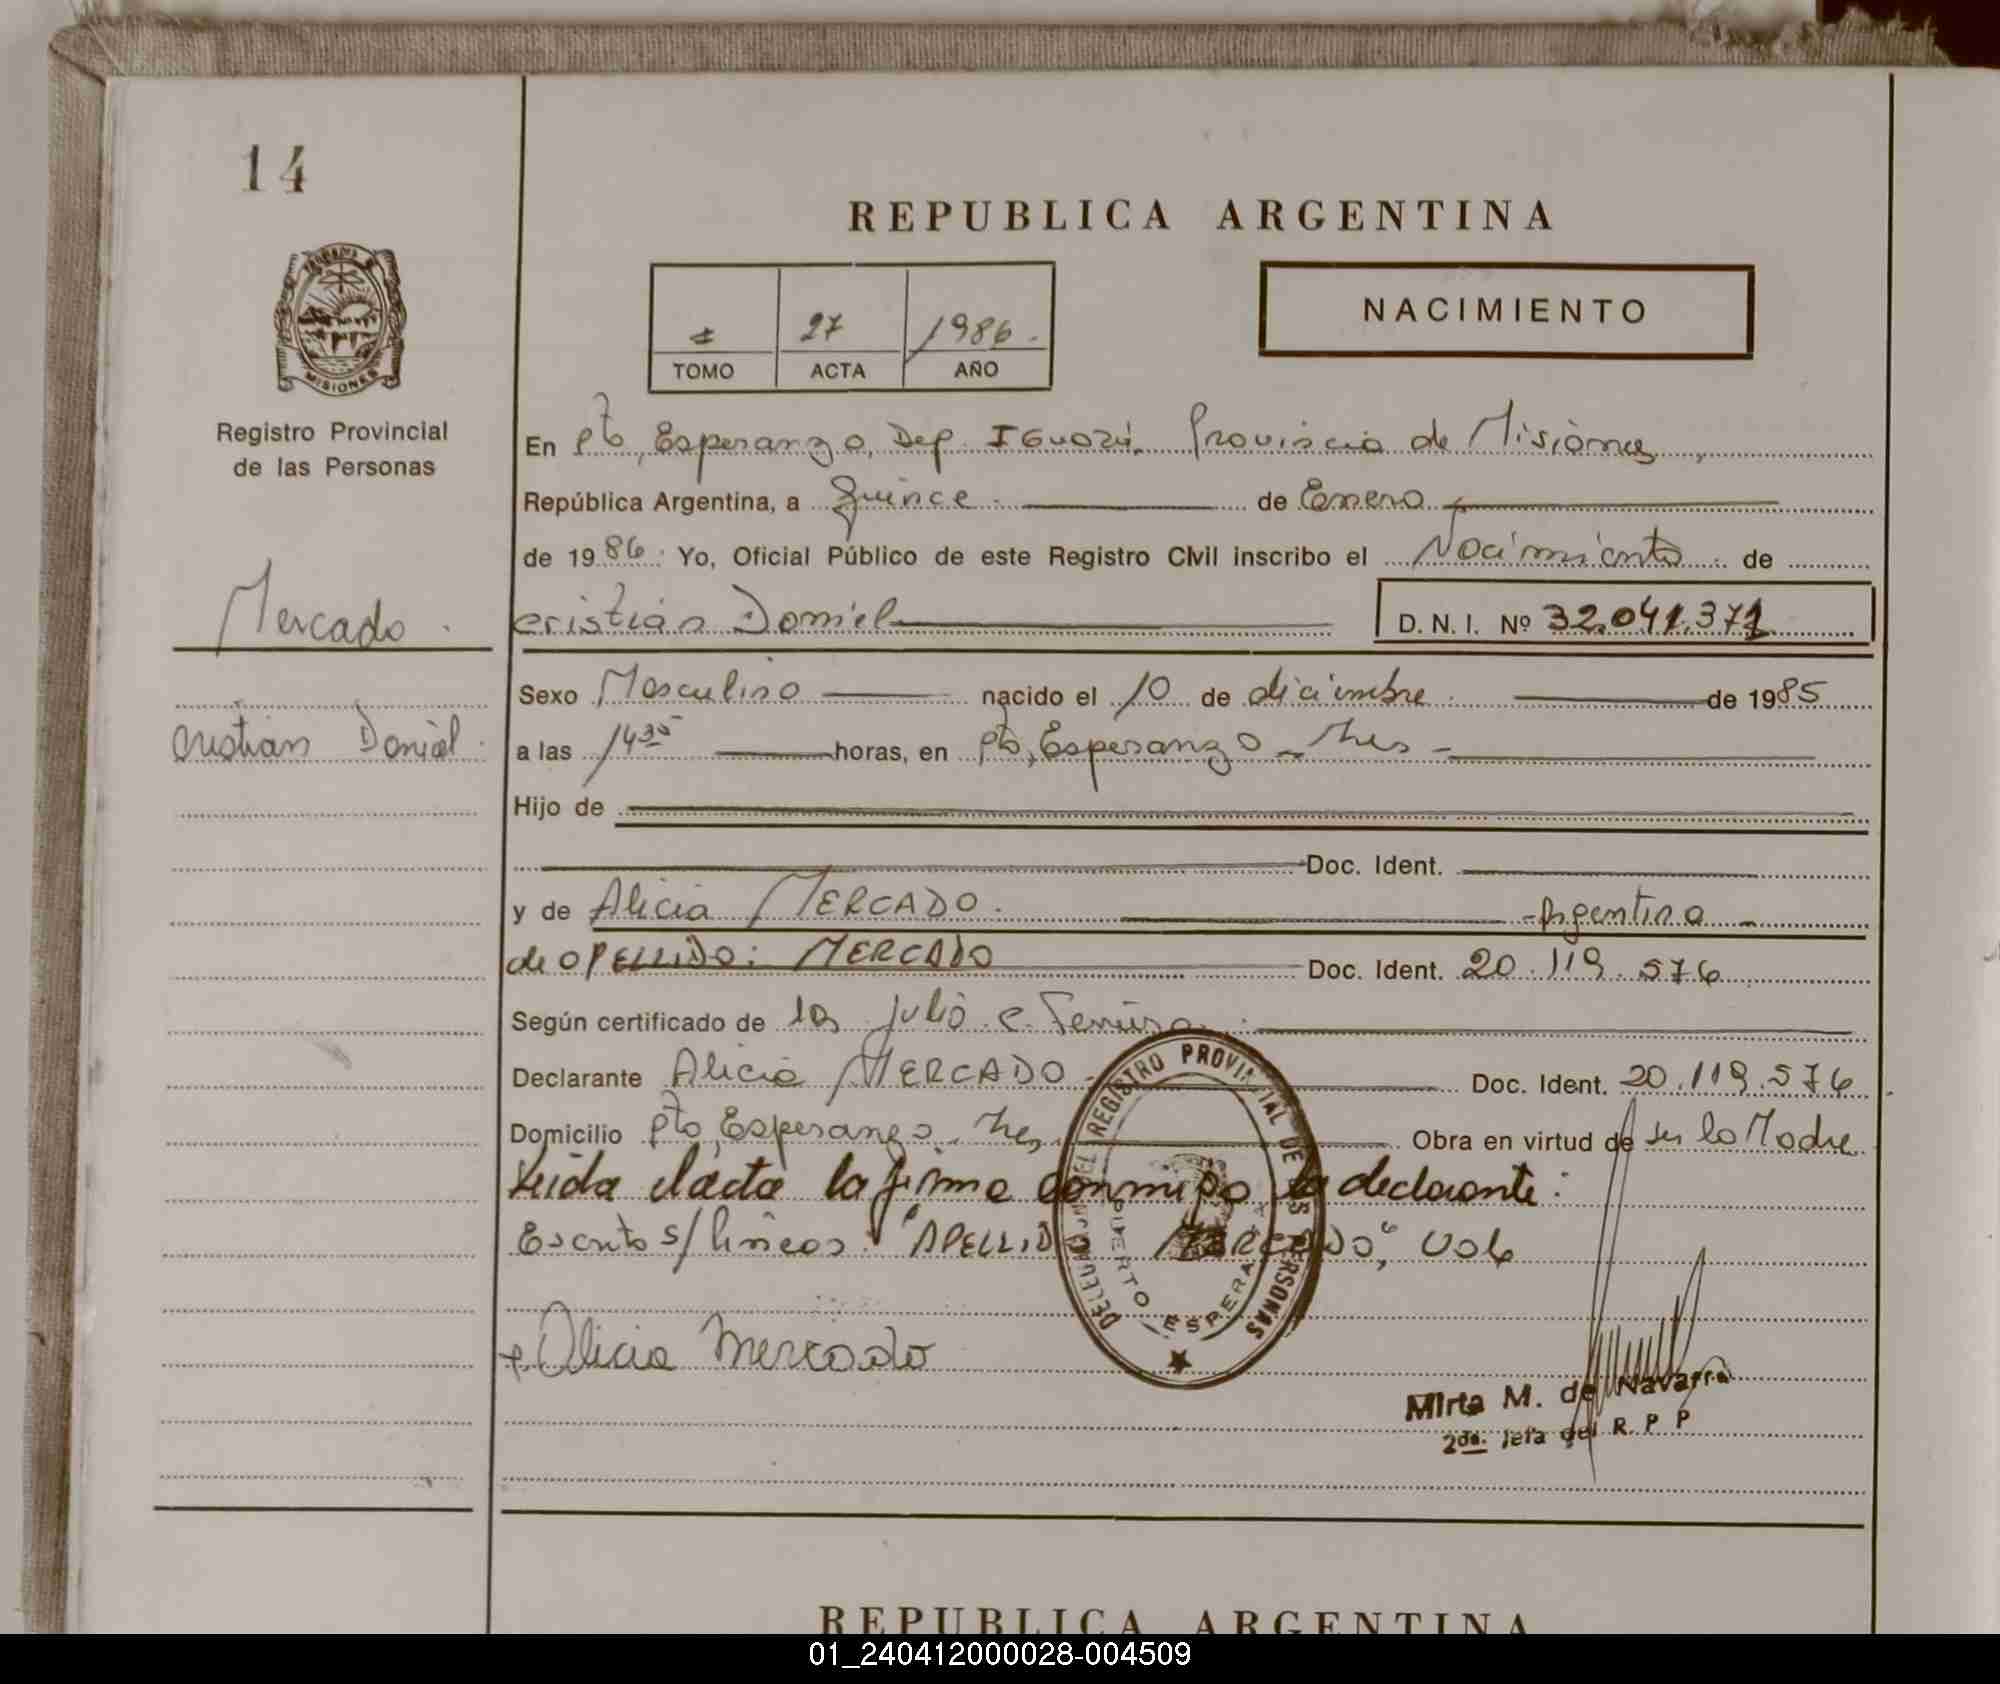 14
REPUBLICA ARGENTINA
NACIMIENTO
27 1986.
TOMO ACTA AÑO
MISIONES
Registro Provincial
de las Personas
En Pto, Esperanza, Dep. IGuazú. Provincia de Misiones,
República Argentina, a Quince. de Enero
de 1986. Yo, Oficial Público de este Registro Civil inscribo el Nacimiento. de
Mercado.
Cristian Daniel D. N. I. Nº 32.041.371
Sexo Masculino nacido el 10 de diciembre. de 1985
Cristian Daniel.
a las 1435 horas, en Pto, Esperanza - Mnes -
Hijo de
Doc. Ident.
y de Alicia MERCADO. -Argentina -
de APELLIDO: MERCADO Doc. Ident. 20.119.576
Según certificado de Julio C.
Declarante Alicia MERCADO - Doc. Ident. 20.119.576
Domicilio Pto, Esperanza. Mnes, Obra en virtud de ser la Madre
Leida el acta la firma conmigo la declarante:
Escrito s/lineas: "APELLIDO MERCADO", Vale
Alicia Mercado
DEL REGISTRO PROVINCIAL DE LAS PERSONAS
PUERTO ESPERANZA
Mirta M. de Navarra
2da. Jefa del R. P P
REPUBLICA ARGENTINA
01_240412000028-004509